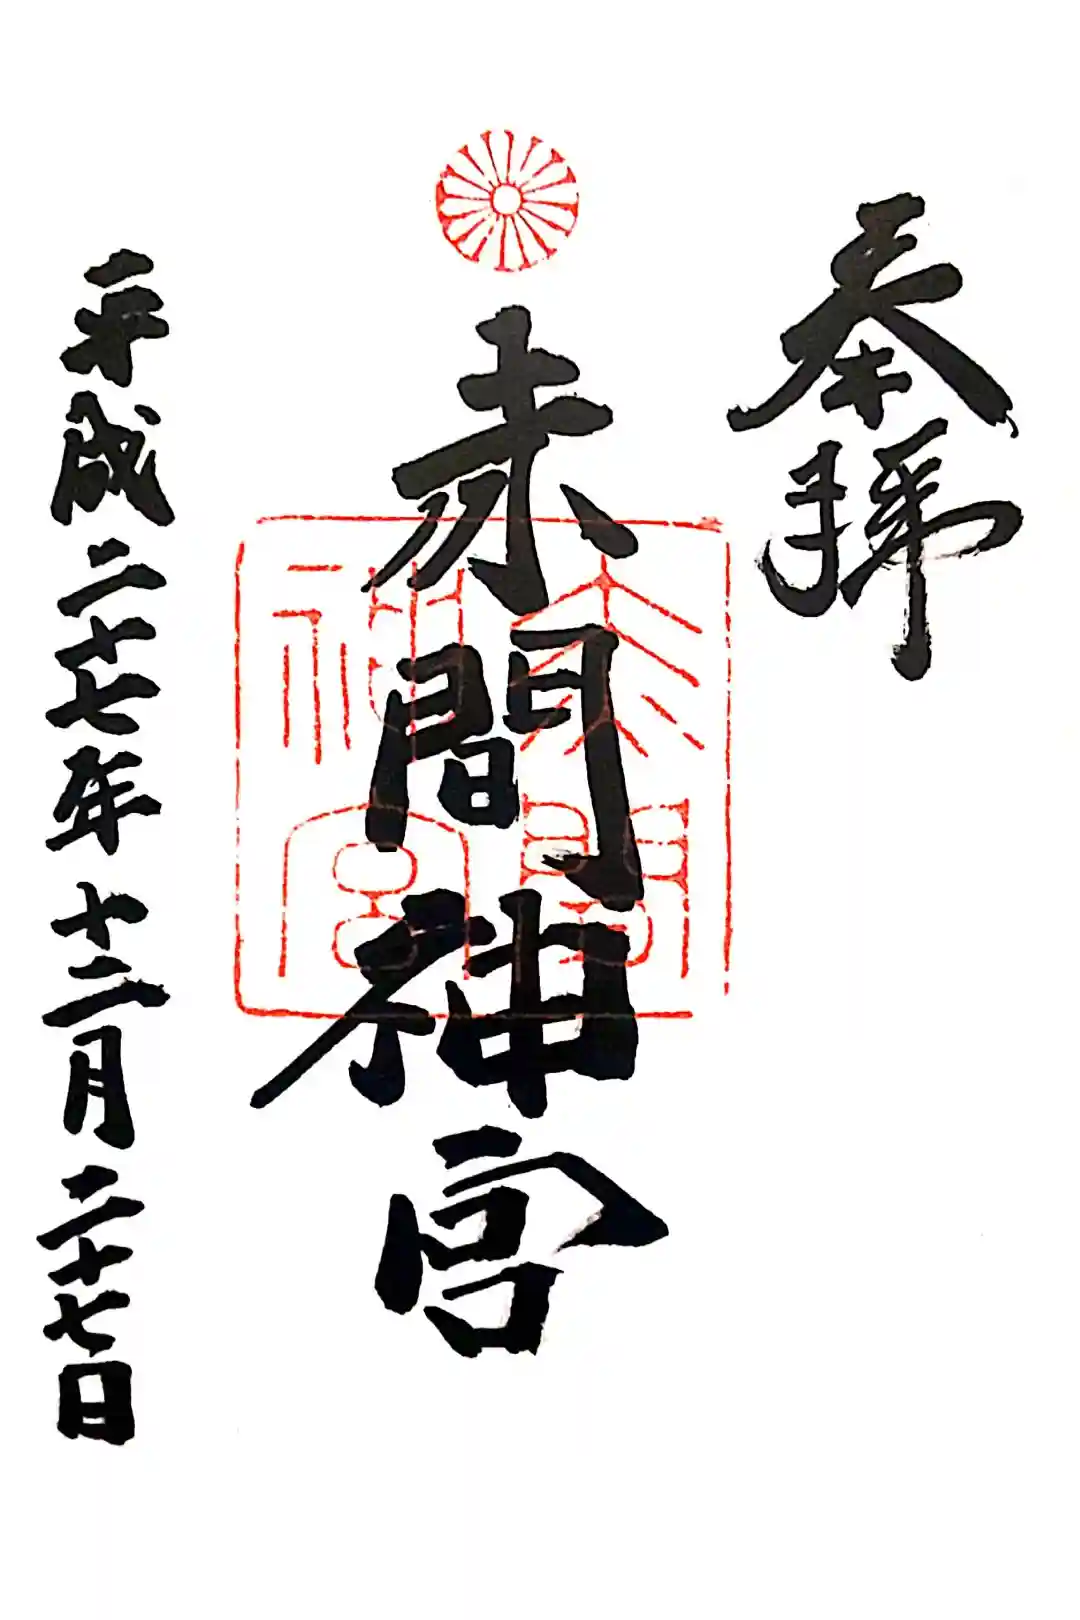 奉拝
赤間神宮
赤間神宮
平成二十七年十二月二十七日